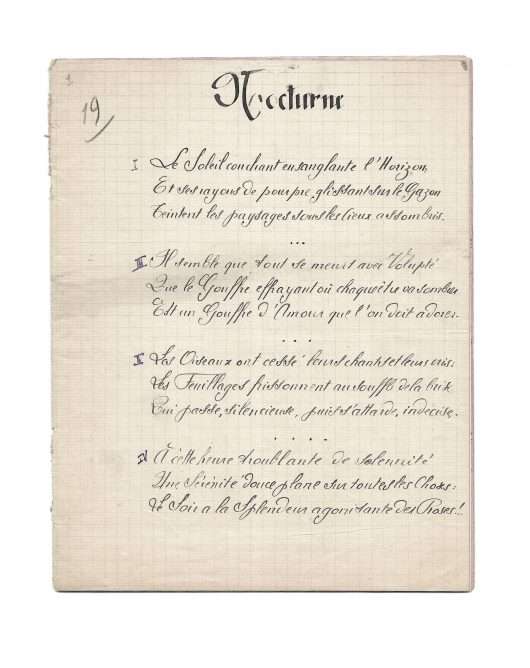 19
Nocturne
I Le Soleil couchant ensanglante l'Horizon,
Et ses rayons de pourpre glissant sur le Gazon
Teintent les paysages sous les Cieux assombris.
...
III Il semble que tout se meurt avec Volupté
Que le Gouffre effrayant où chaque être va sombrer
Est un Gouffre d'Amour que l'on doit adorer.
...
II Les Oiseaux ont cessé leurs chants et leurs cris:
Les Feuillages frissonnent au souffle de la brise
Qui passe, silencieuse, puis s'attarde, indécise.
....
IV À cette heure troublante de solennité
Une Sérénité douce plane sur toutes les Choses:
Le Soir a la Splendeur agonisante des Roses!